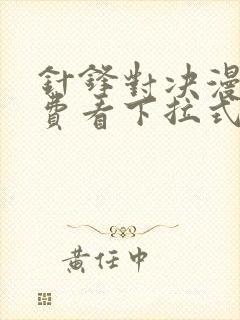 針鋒對决漫
費看下拉式
黃任中